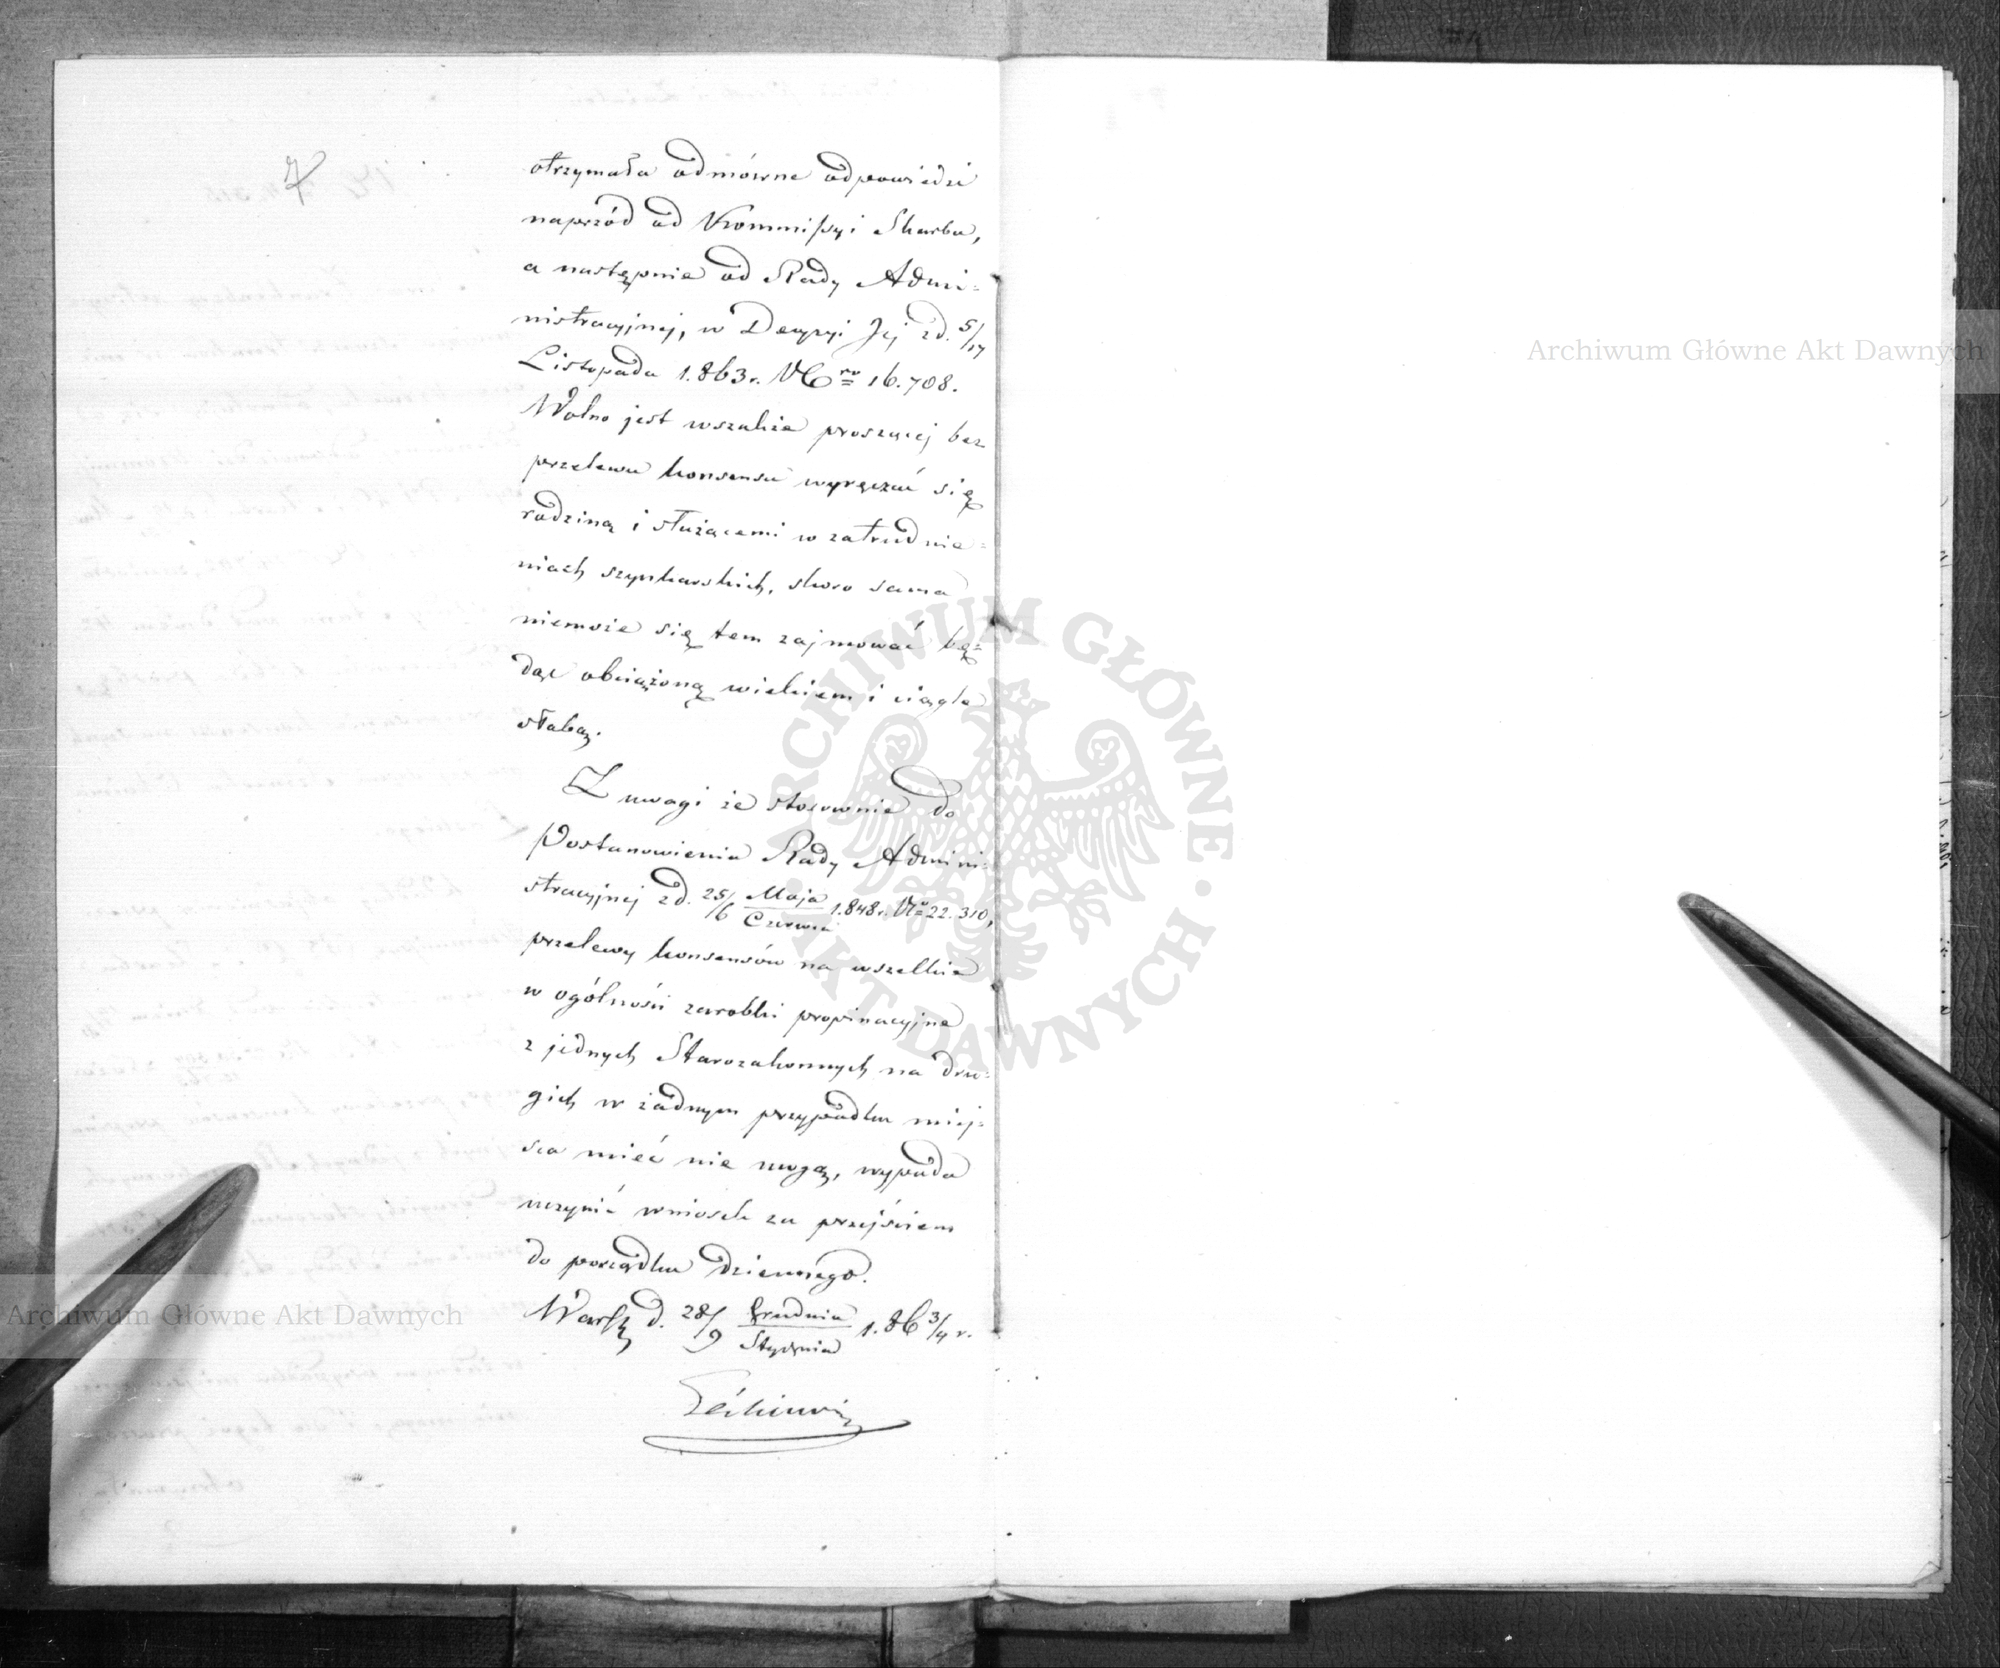 otrzymała odmówne odpowiedzi
naprzód od Kommissyi Skarbu,
a następnie od Rady Admi=
nistracyjnej, w Decyzyi Jej z d. 5/17
Listopada 1.863 r. N^ro 16.708.
Wolno jest wszakże proszącej bez
przelewu konsensu wyręczać się
rodziną i służącemi w zatrudnie=
niach szynkarskich, skoro sama
niemoże się tem zajmować bę=
dąc obciążoną wiekiem i ciągle
słabą.
Z uwagi że stosownie do
Postanowienia Rady Admini=
stracyjnej z d. 25/6 Maja/Czerwca 1.848 r. N^o 22.310,
przelewy konsensów na wszelkie
w ogólności zarobki propinacyjne
z jednych Starozakonnych na dru=
gich w żadnym przypadku miej=
sca mieć nie mogą, wypada
uczynić wniosek za przejściem
do porządku dziennego.
Warsz. d. 28/9 Grudnia/Stycznia 1.86 3/4 r.
Archiwum Główne Akt Dawnych
Archiwum Główne Akt Dawnych
ARCHIWUM GŁÓWNE
· AKT DAWNYCH ·